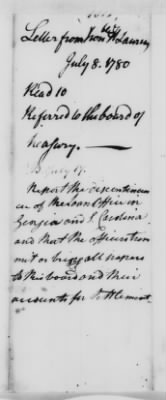 Letter from Hon ble H Laurens
July 8. 1780
Read 10
Referred to the board of
treasury. —
July 17.
Report the
of the loan Office in
Georgia and S. Carolina
and that the officers trans
mit or bring all papers
to this board and their
accounts for settlement